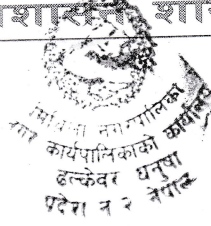 प्रशासन शा
नगरपालिका
नगर कार्यपालिकाको कार्यालय
ढल्केवर धनुषा
प्रदेश नं २ नेपाल